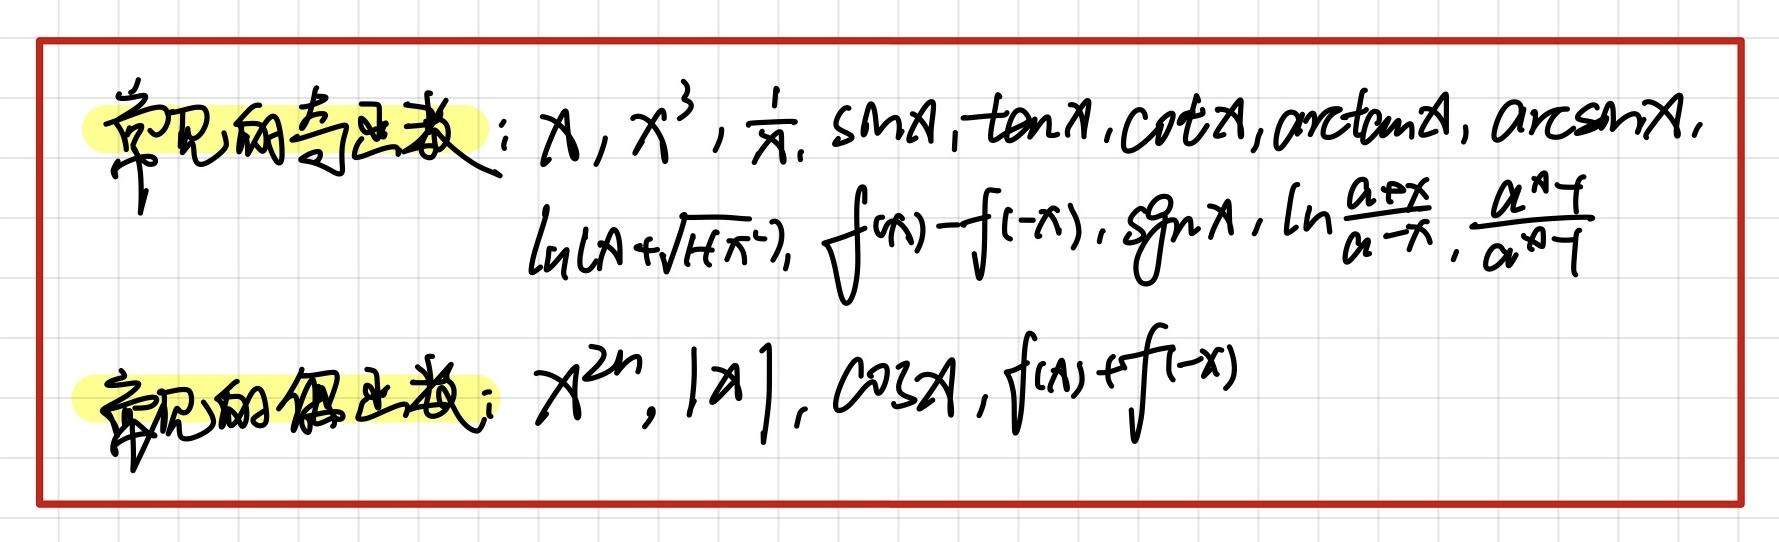 常见的奇函数：x, x³, 1/x, sinx, tanx, cotx, arctanx, arcsinx,
ln(x+√(1+x²)), f(x)-f(-x), sgnx, ln (a+x)/(a-x), (a^x-1)/(a^x-1)
常见的偶函数：x^{2n}, |x|, cosx, f(x)+f(-x)